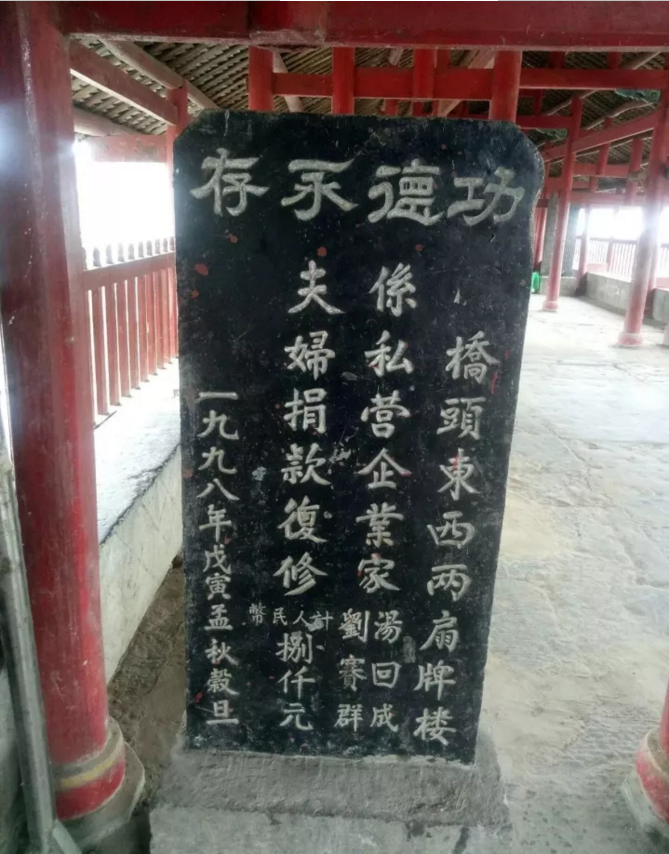 功德永存
橋頭東西两扇牌楼
係私营企業家湯回成劉賽群
夫婦捐款復修計人民幣捌仟元
一九九八年戊寅孟秋穀旦